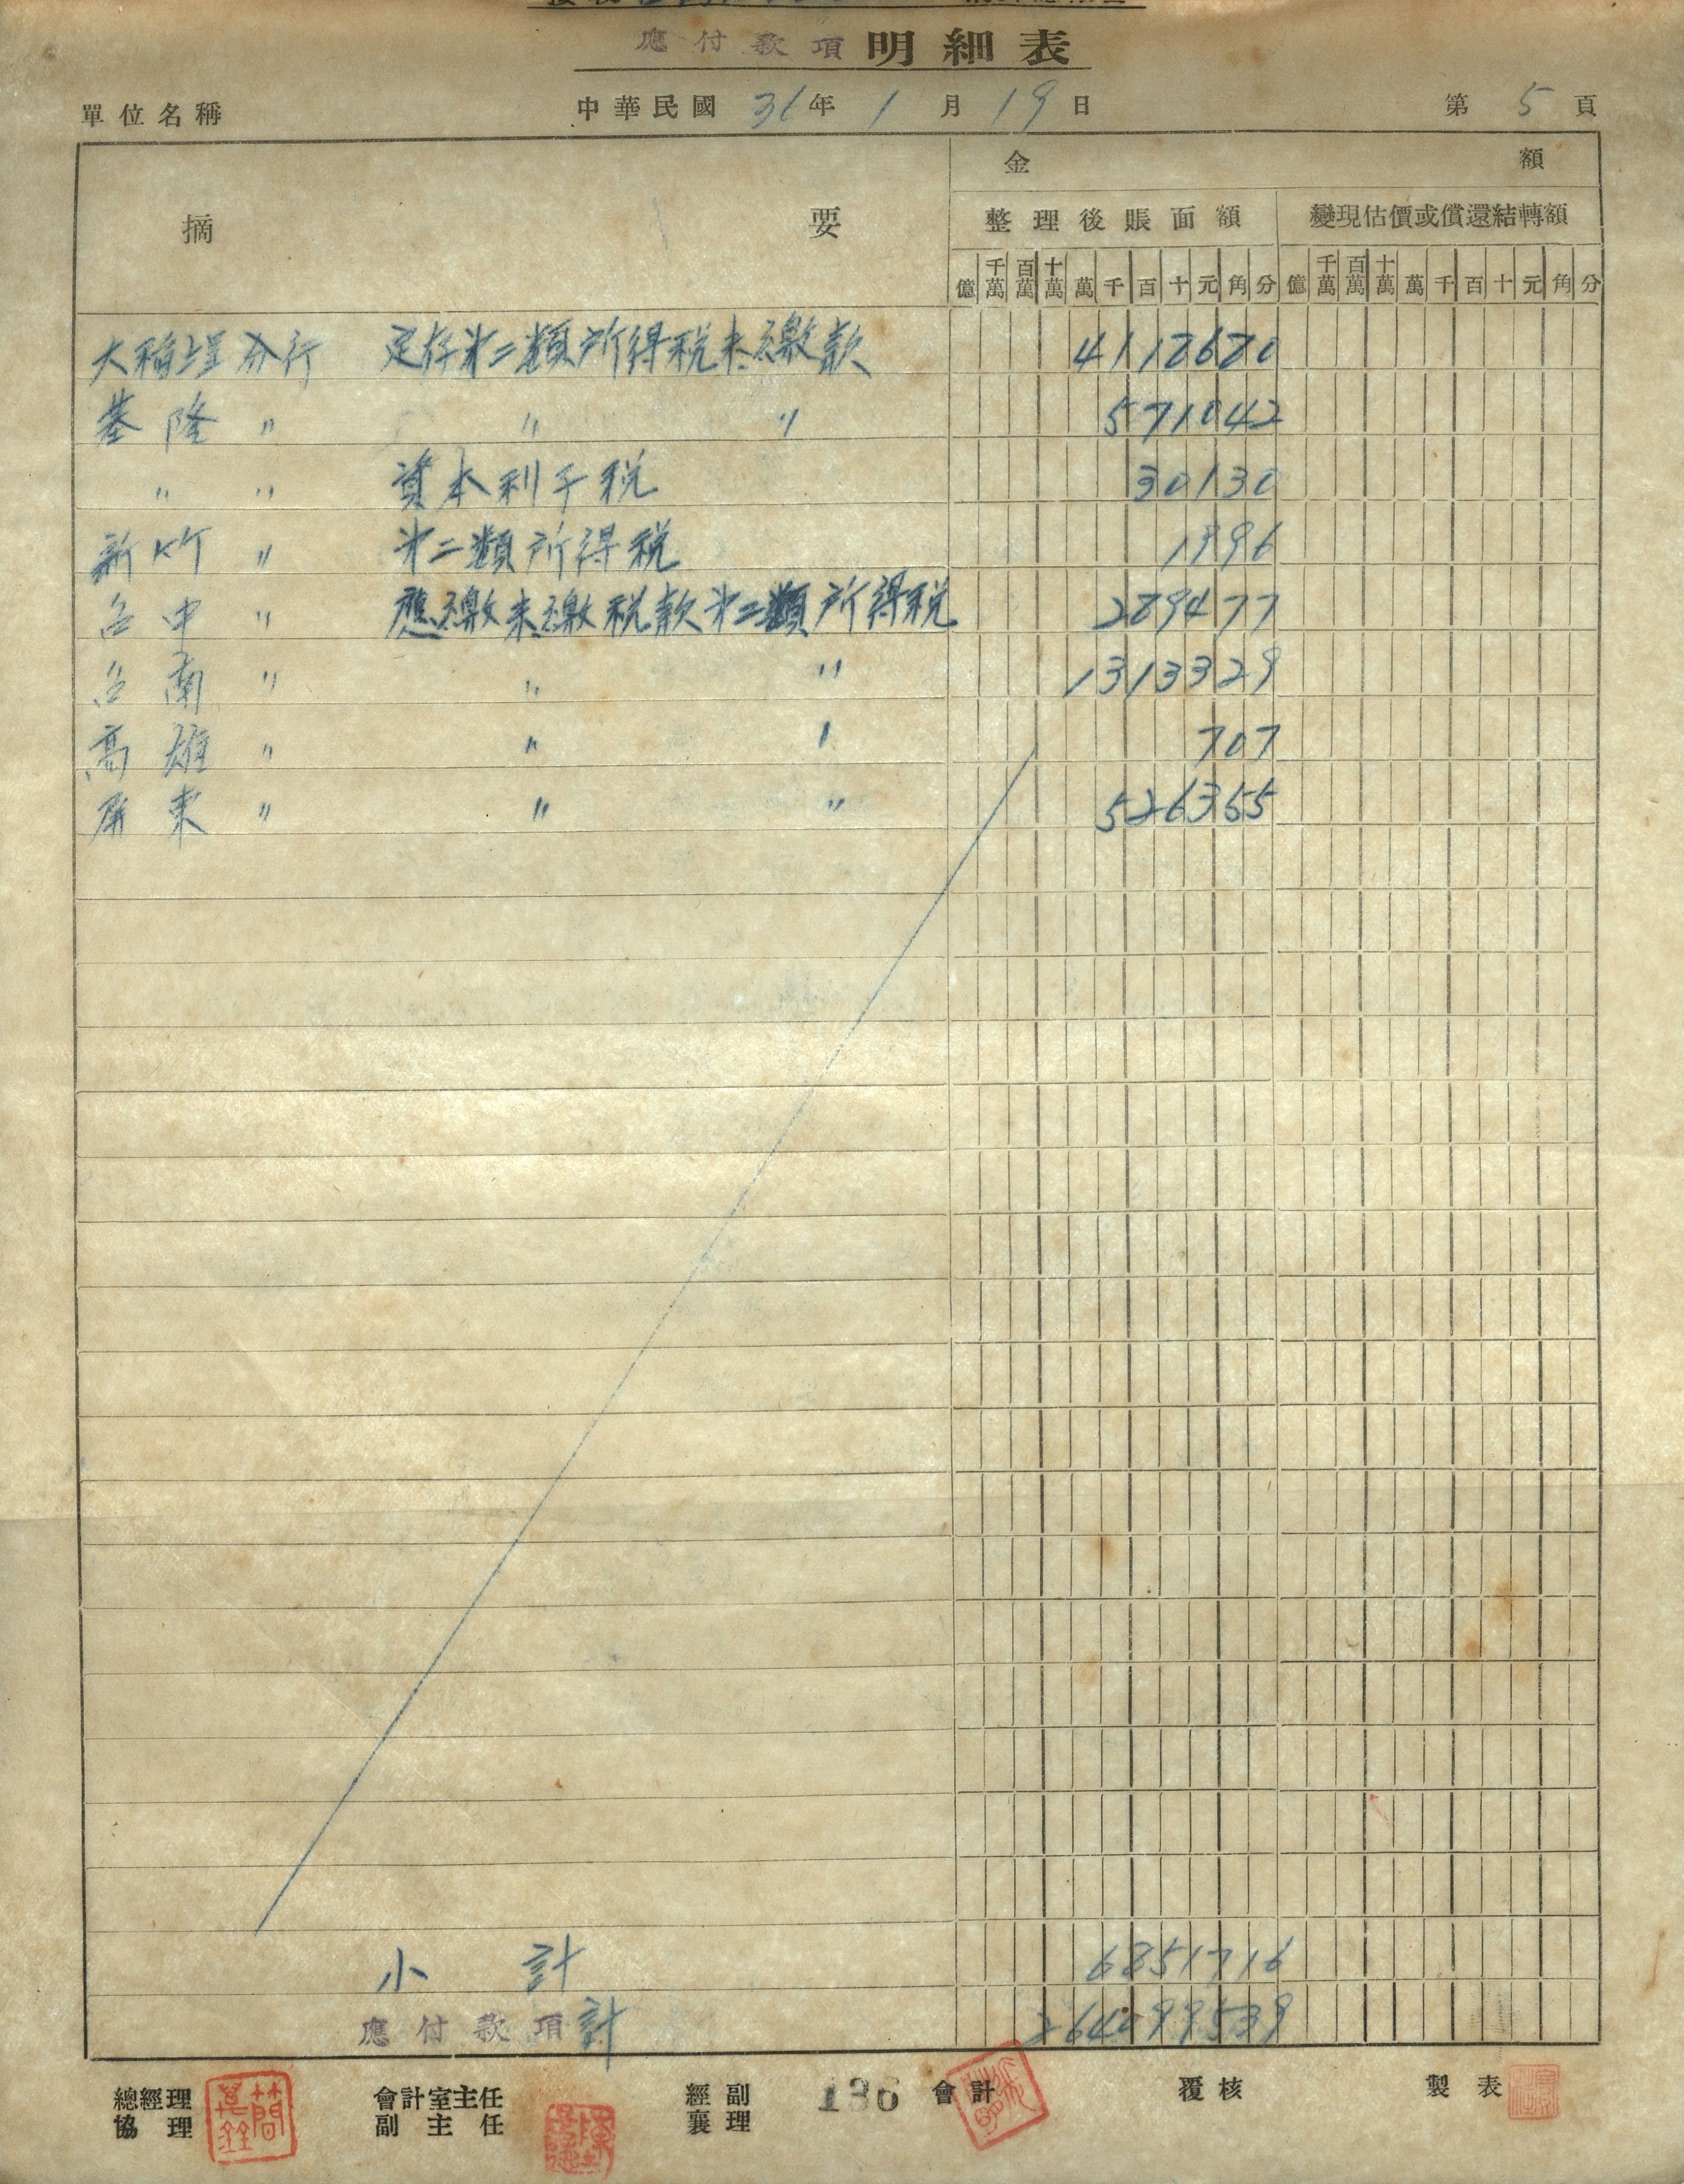 應付款項明細表
單位名稱 中華民國 31年 1 月 19 日 第 5 頁
摘 要 金 額
整理後賬面額 變現估價或償還結轉額
億 千萬 百萬 十萬 萬 千 百 十 元 角 分 億 千萬 百萬 十萬 萬 千 百 十 元 角 分
大稻埕分行 定存第二類所得税未繳款 4118680
基隆 〃 〃 〃 571042
〃 〃 資本利子税 30130
新竹 〃 第二類所得税 1396
台中 〃 應繳未繳税款第二類所得税 289477
台南 〃 〃 〃 1313329
高雄 〃 〃 〃 707
屏東 〃 〃 〃 526355
小 計 6851116
應付款項計
總經理 會計室主任 經副 136 會計 覆核 製表
協理 副主任 襄理